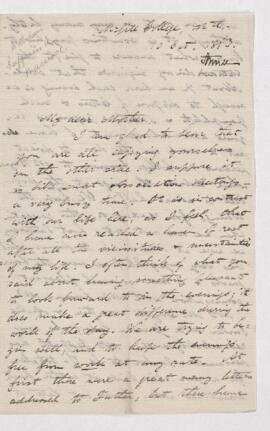 College
My dear Mother,
I am glad to hear that
you are all enjoying yourselves
on the other side. I suppose it
is like most
a very busy time. It is in contrast
with our life here, as I feel that
I have now reached a haven of rest
after all the vicissitudes & uncertainties
of my life. I often think of what you
said about having something pleasant
to look forward to in the evenings; it
does make a great difference during the
work of the day. We are trying to be-
gin well, and to keep the evenings
free from work at any rate. At
first there were a great many letters
addressed to Father, but these have